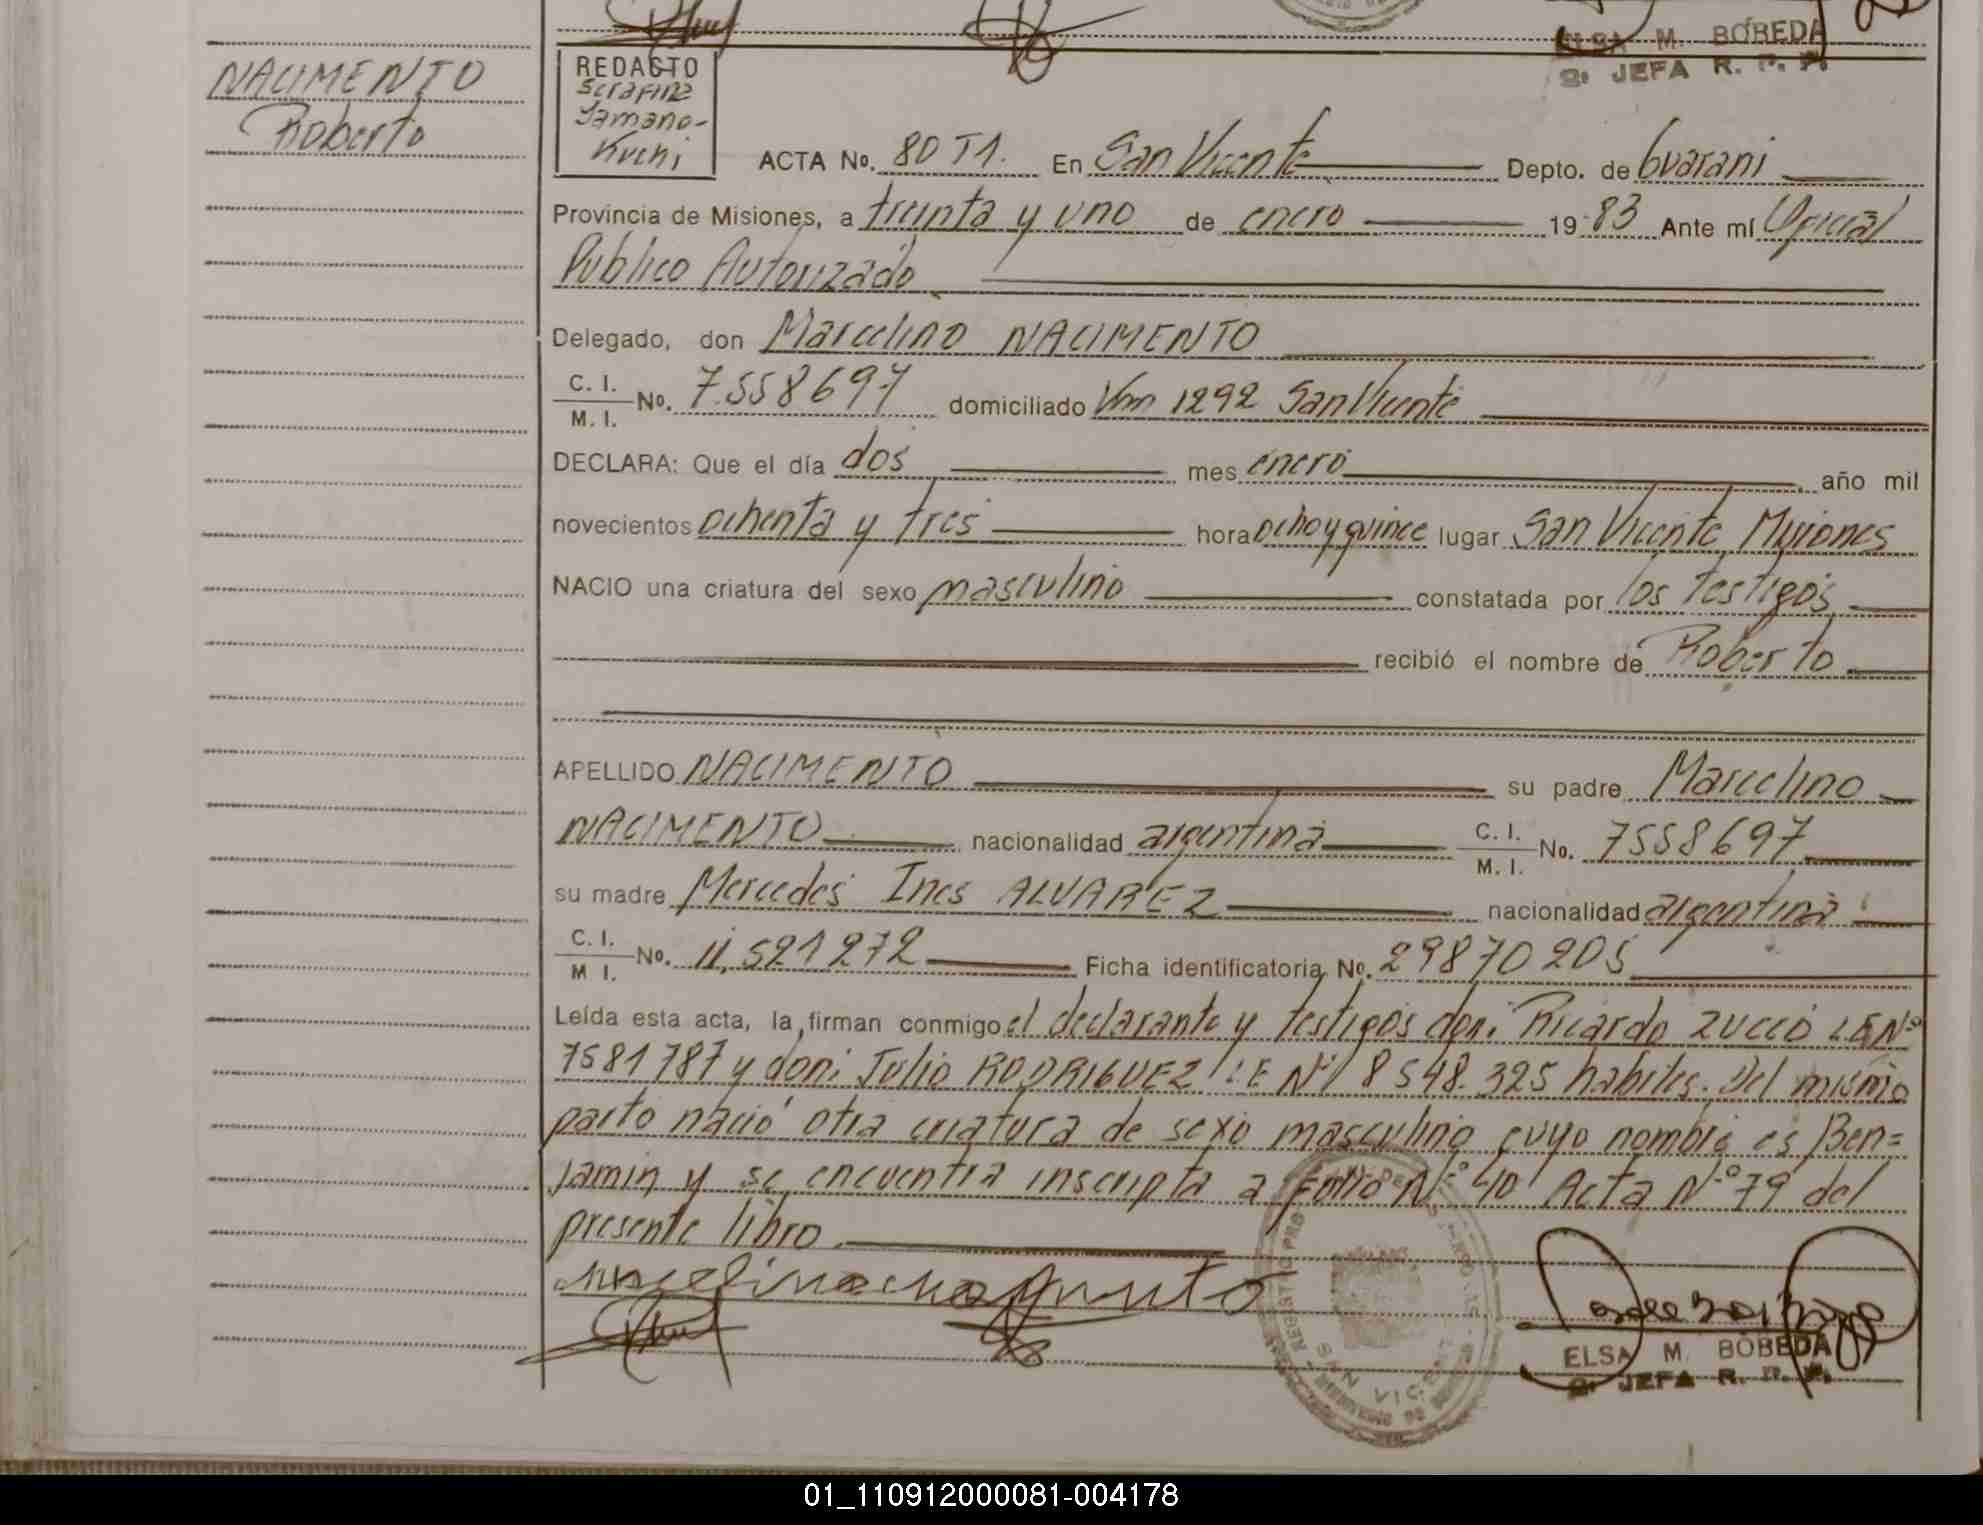 ELSA M. BOBEDA
2º JEFA R. P. P.
NACIMENTO
Roberto
REDACTO
Serafina
Yamano-
Kuchi
ACTA No. 80 T1. En San Vicente Depto. de Guarani
Provincia de Misiones, a treinta y uno de enero 1983 Ante mí Oficial
Publico Autorizado
Delegado, don Marcelino NACIMENTO
C. I.
M. I. No. 7.558697 domiciliado Km 1292 San Vicente
DECLARA: Que el día dos mes enero año mil
novecientos ochenta y tres hora ocho y quince lugar San Vicente, Misiones
NACIO una criatura del sexo masculino constatada por los testigos
recibió el nombre de Roberto
APELLIDO NACIMENTO su padre Marcelino
NACIMENTO nacionalidad argentina C. I.
M. I. No. 7558697
su madre Mercedes Ines ALVAREZ nacionalidad argentina
C. I.
M I. No. 11.521272 Ficha identificatoria No. 29870205
Leída esta acta, la firman conmigo el declarante y testigos don: Ricardo ZUCCO L.E Nº
7581787 y don: Julio RODRIGUEZ L.E Nº 8548.325 habiles. Del mismo
parto nació otra criatura de sexo masculino cuyo nombre es Ben=
jamin y se encuentra inscripta a Folio Nº 40 Acta Nº 79 del
presente libro
SAN VICENTE
ELSA M. BOBEDA
2º JEFA R. P. P.
01_110912000081-004178